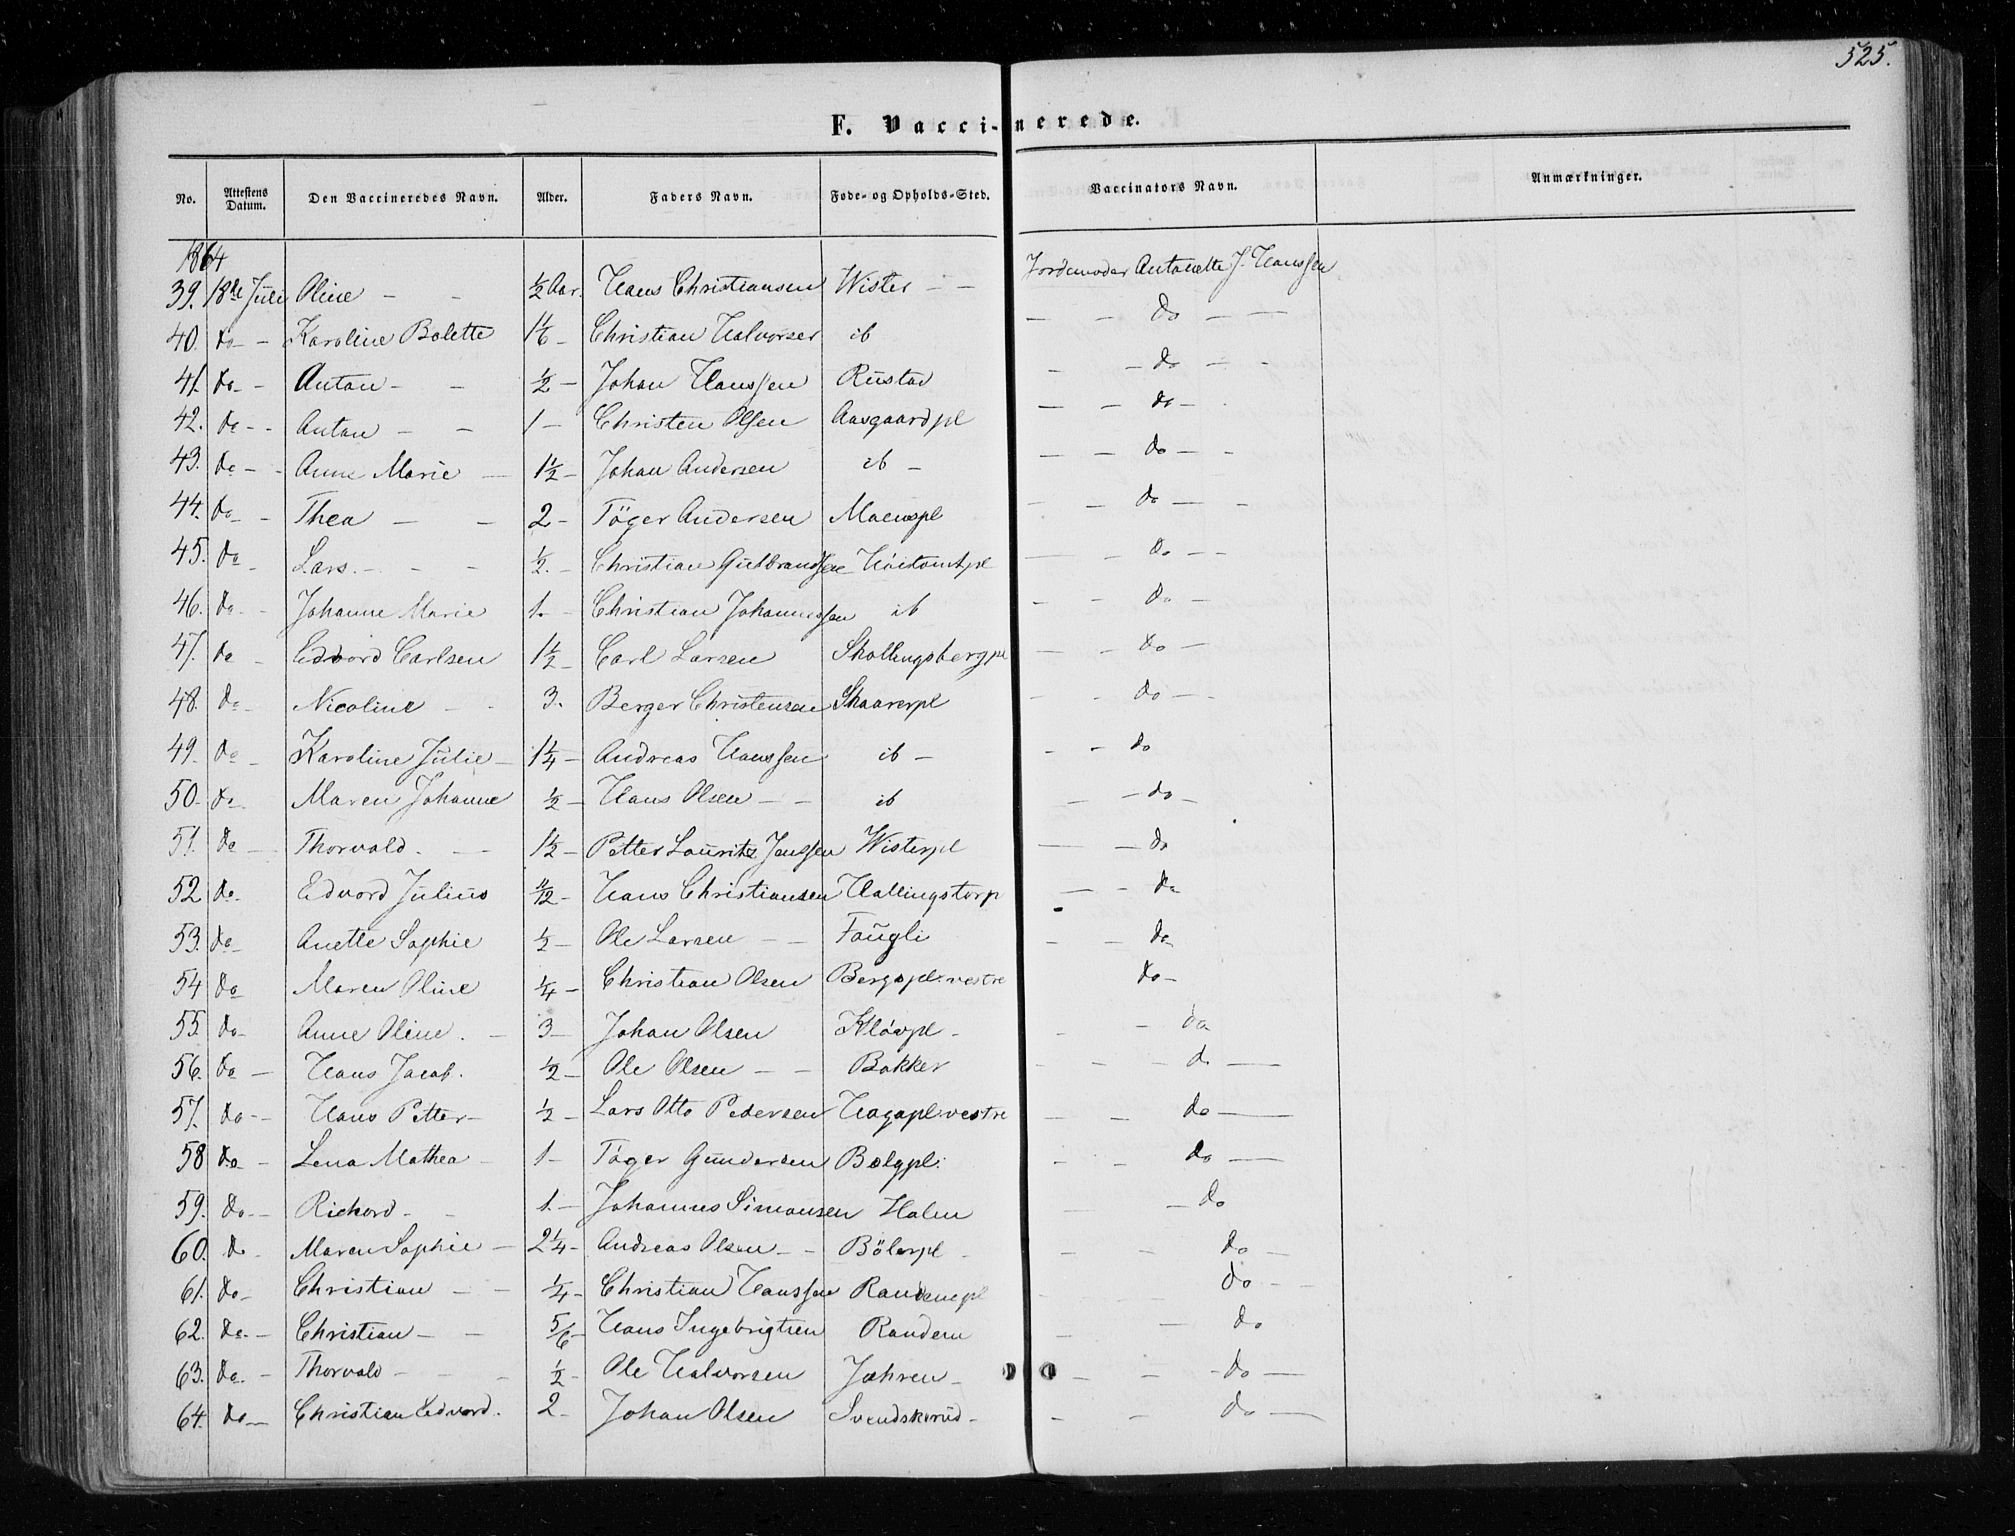 525.
F. Vacci-nerede.
No. Attestens Datum. Den Vaccineredes Navn. Alder. Faders Navn. Føde- og Opholds-Sted. Vaccinators Navn. Anmærkninger.
1864
39. 18de Juli Oline - - ½ Aar. Hans Christiansen Wister - - Jordemoder Antonette J. Hanssen
40. do - - Karoline Bolette 1 1/6 - Christian Halvorsen ib - - do - -
41. do - - Anton - - ½ - Johan Hanssen Rustad - - do - -
42. do - - Anton - - 1 - Christen Olsen Aasgaardpl - - do - -
43. do - - Anne Marie - 1½ - Johan Andersen ib - - - do - -
44. do - - Thea - - 2 - Töger Andersen Moenspl - - do - -
45. do - Lars - - - ½ - Christian Gulbrandsen Höitomtpl - - do - -
46. do - - Johanne Marie 1. - Christian Johannessen ib - - do -
47. do - Edvard Carlsen 1½ - Carl Larsen Skollingsbergpl - - do -
48. do - Nicoline - - 3. Berger Christensen Skaarerpl - - do - -
49. do - Karoline Julie - 1¼ - Andreas Hanssen ib - - - do
50. do - Maren Johanne ½ - Hans Olsen - - ib - - do -
51. do - Thorvald. - - 1½ - Petter Lauritz Jenssen Wisterpl - - do
52 do - Edvard Julius 11/12 - Hans Christiansen Hallingstorp - - do
53. do - Anette Sophie ½ - Ole Larsen - - Faugli - - do
54 do Maren Oline ¼ - Christian Olsen Bergspl. vestre do -
55. do - Anne Oline. - 3 - Johan Olsen Klövpl - - - do
56. do - Hans Jacob. ½ - Ole Olsen - - Bakker - - - do -
57. do - - Hans Petter - ½ - Lars Otto Pedersen Hagapl. vestre - - do -
58 do - Lena Mathea - 1 - Töger Gundersen Bølgpl. - - do -
59. do - - Richard - - 1. - Johannes Simonsen Holen - - do
60. do - Maren Sophie - 2¼ - Andreas Olsen - - Bölerpl - - - do -
61. do - Christian - - ¼ - Christian Hanssen Randempl - do - -
62. do - - Christian - - 5/6 - Hans Ingebrigtsen Randem - - do
63. do - - Thorvald - - - ½ - Ole Halvorsen Jahren - - - - do -
64. do - Christian Edvard. 2 - Johan Olsen Svendskerud - - - do -